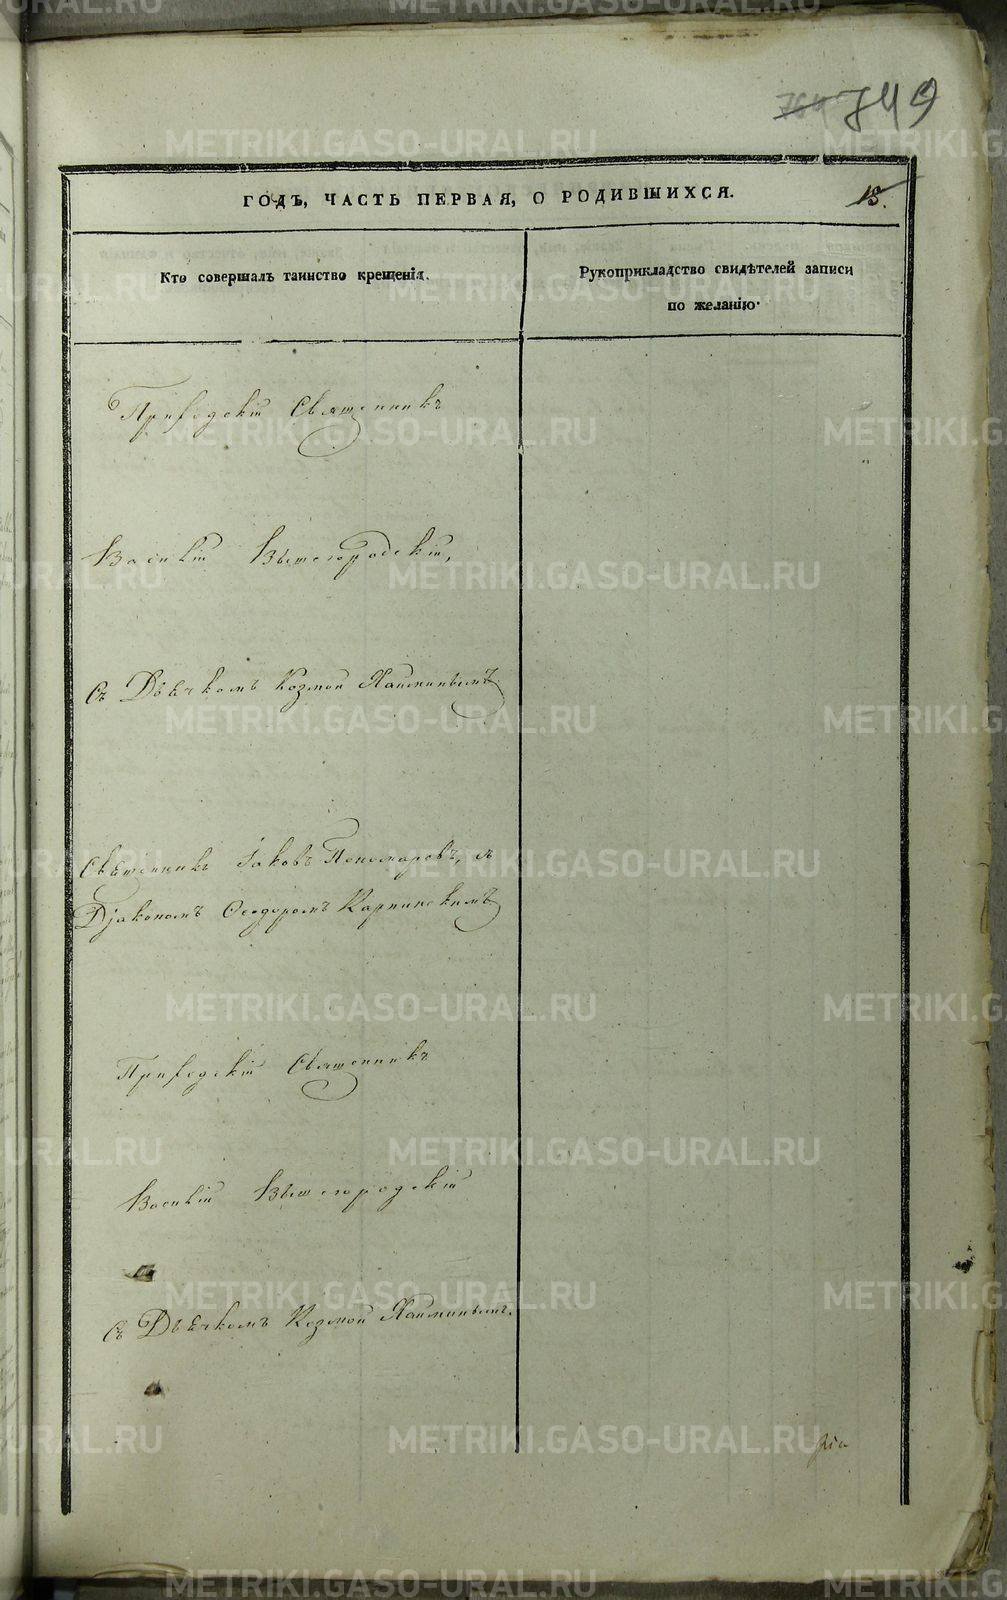 749
ГОДЪ, ЧАСТЬ ПЕРВАЯ, О РОДИВШИХСЯ.
13.
Кто совершалъ таинство крещенія.
Рукоприкладство свидѣтелей записи
по желанію.
Приходскій Священникъ
Василій Вышегородскій,
Съ Дьячкомъ Козмой
Священникъ Іаковъ Пономаровъ, съ
Діакономъ Феодоромъ Карпинскимъ
Приходскій Священникъ
Василій Вышегородскій
Съ Дьячкомъ Козмой
METRIKI.GASO-URAL.RU